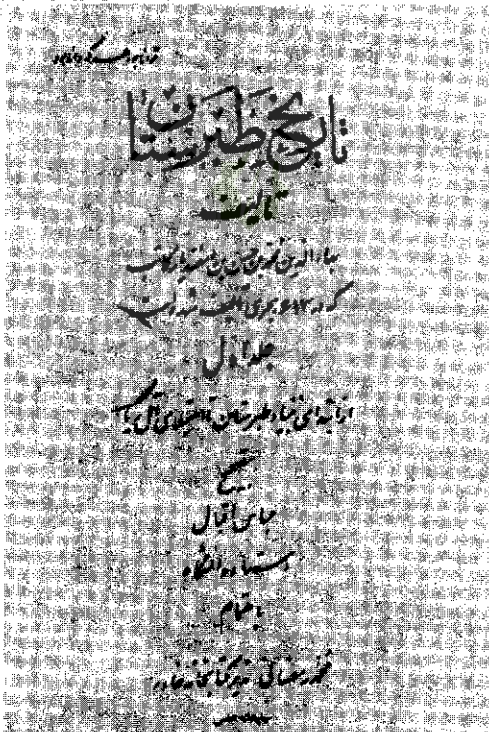 تاریخ طبرستان
تألیف
بهاء الدین محمد بن حسن بن اسفندیار کاتب
که در ۶۱۳ هجری تألیف شده است
جلد اول
از ابتدای بنیاد طبرستان تا استیلای آل زیار
بتصحیح
عباس اقبال
استاد دانشگاه
باهتمام
محمد رمضانی مدیر کتابخانه خاور